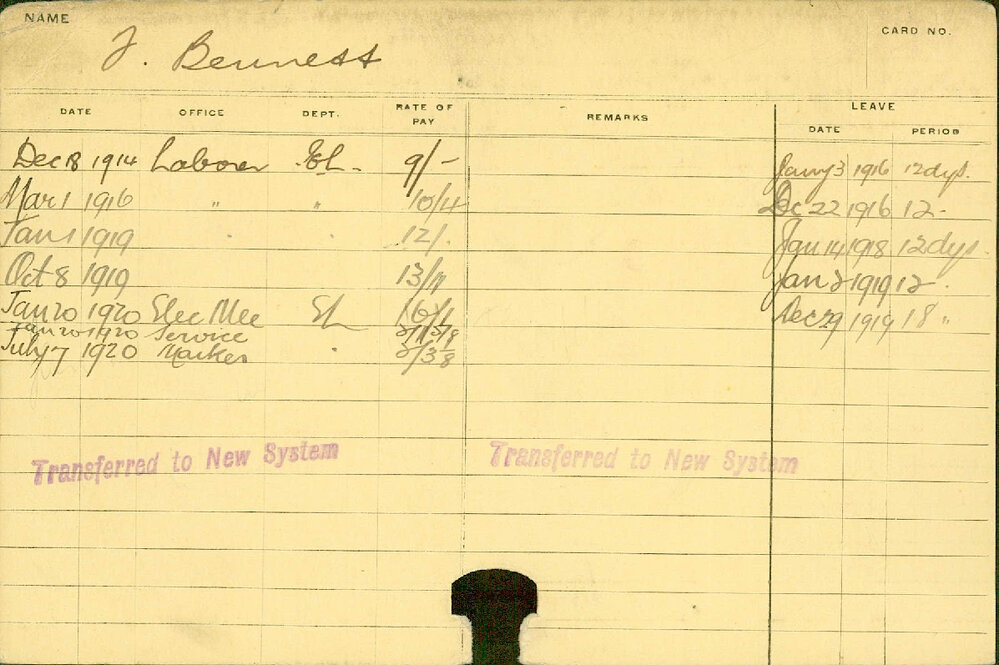 NAME
CARD NO.
J. Bennett
DATE OFFICE DEPT. RATE OF PAY REMARKS LEAVE
DATE PERIOD
Dec 18 1914 Laborer El. 9/- Jany 3 1916 12 dys.
Mar 1 1916 " " 10/4 Dec 22 1916 12
Jan 1 1919 12/. Jan 14 1918 12 dys
Oct 8 1919 13/ Jan 2 1919 12
Jan 20 1920 Elec Mec El 16/1 Dec 29 1919 18 "
Jan 20 1920 Service
July 7 1920 2/3 8
Transferred to New System Transferred to New System